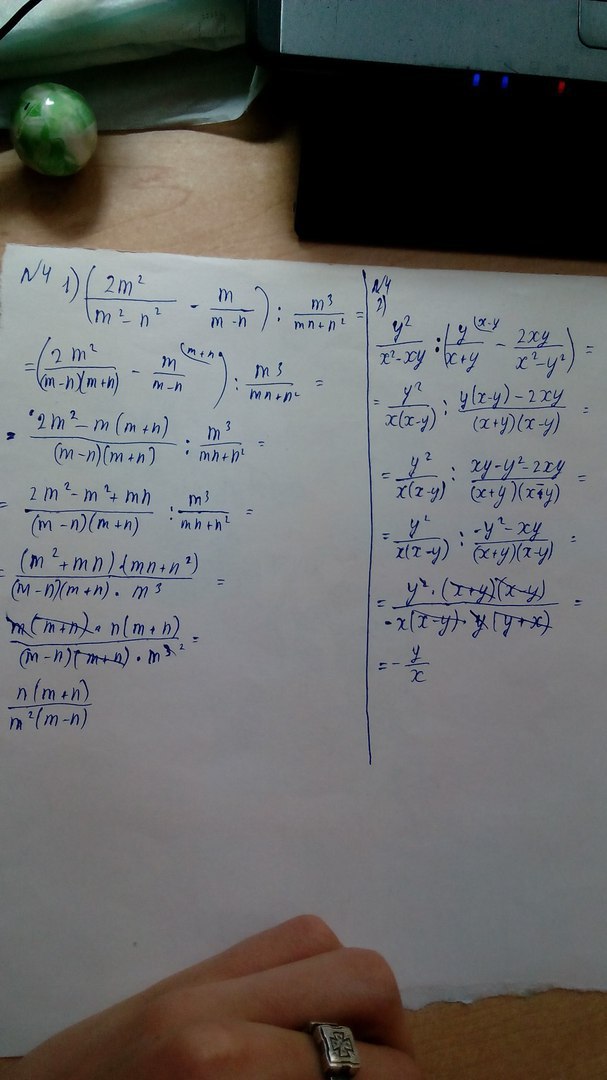 N4 1) (2m²/(m² - n²) - m/(m-n)) : m³/(mn+n²) =
= (2m²/((m-n)(m+n)) - m/(m-n) (m+n)) : m³/(mn+n²) =
= (2m² - m(m+n))/((m-n)(m+n)) : m³/(mn+n²) =
= (2m² - m² + mn)/((m-n)(m+n)) : m³/(mn+n²) =
= ((m² + mn)·(mn+n²))/((m-n)(m+n) · m³) =
(m(m+n) · n(m+n))/((m-n)(m+n) · m³ ²) =
n(m+n)/(m²(m-n))
N4
2)
y²/(x²-xy) : (y/(x+y) (x-y - 2xy/(x²-y²)) =
= y²/(x(x-y)) : (y(x-y) - 2xy)/((x+y)(x-y)) =
= y²/(x(x-y)) : (xy-y²-2xy)/((x+y)(x-y)) =
= y²/(x(x-y)) : (-y²-xy)/((x+y)(x-y)) =
= (y² · (x+y)(x-y))/(-x(x-y) · y(y+x)) =
= - y/x